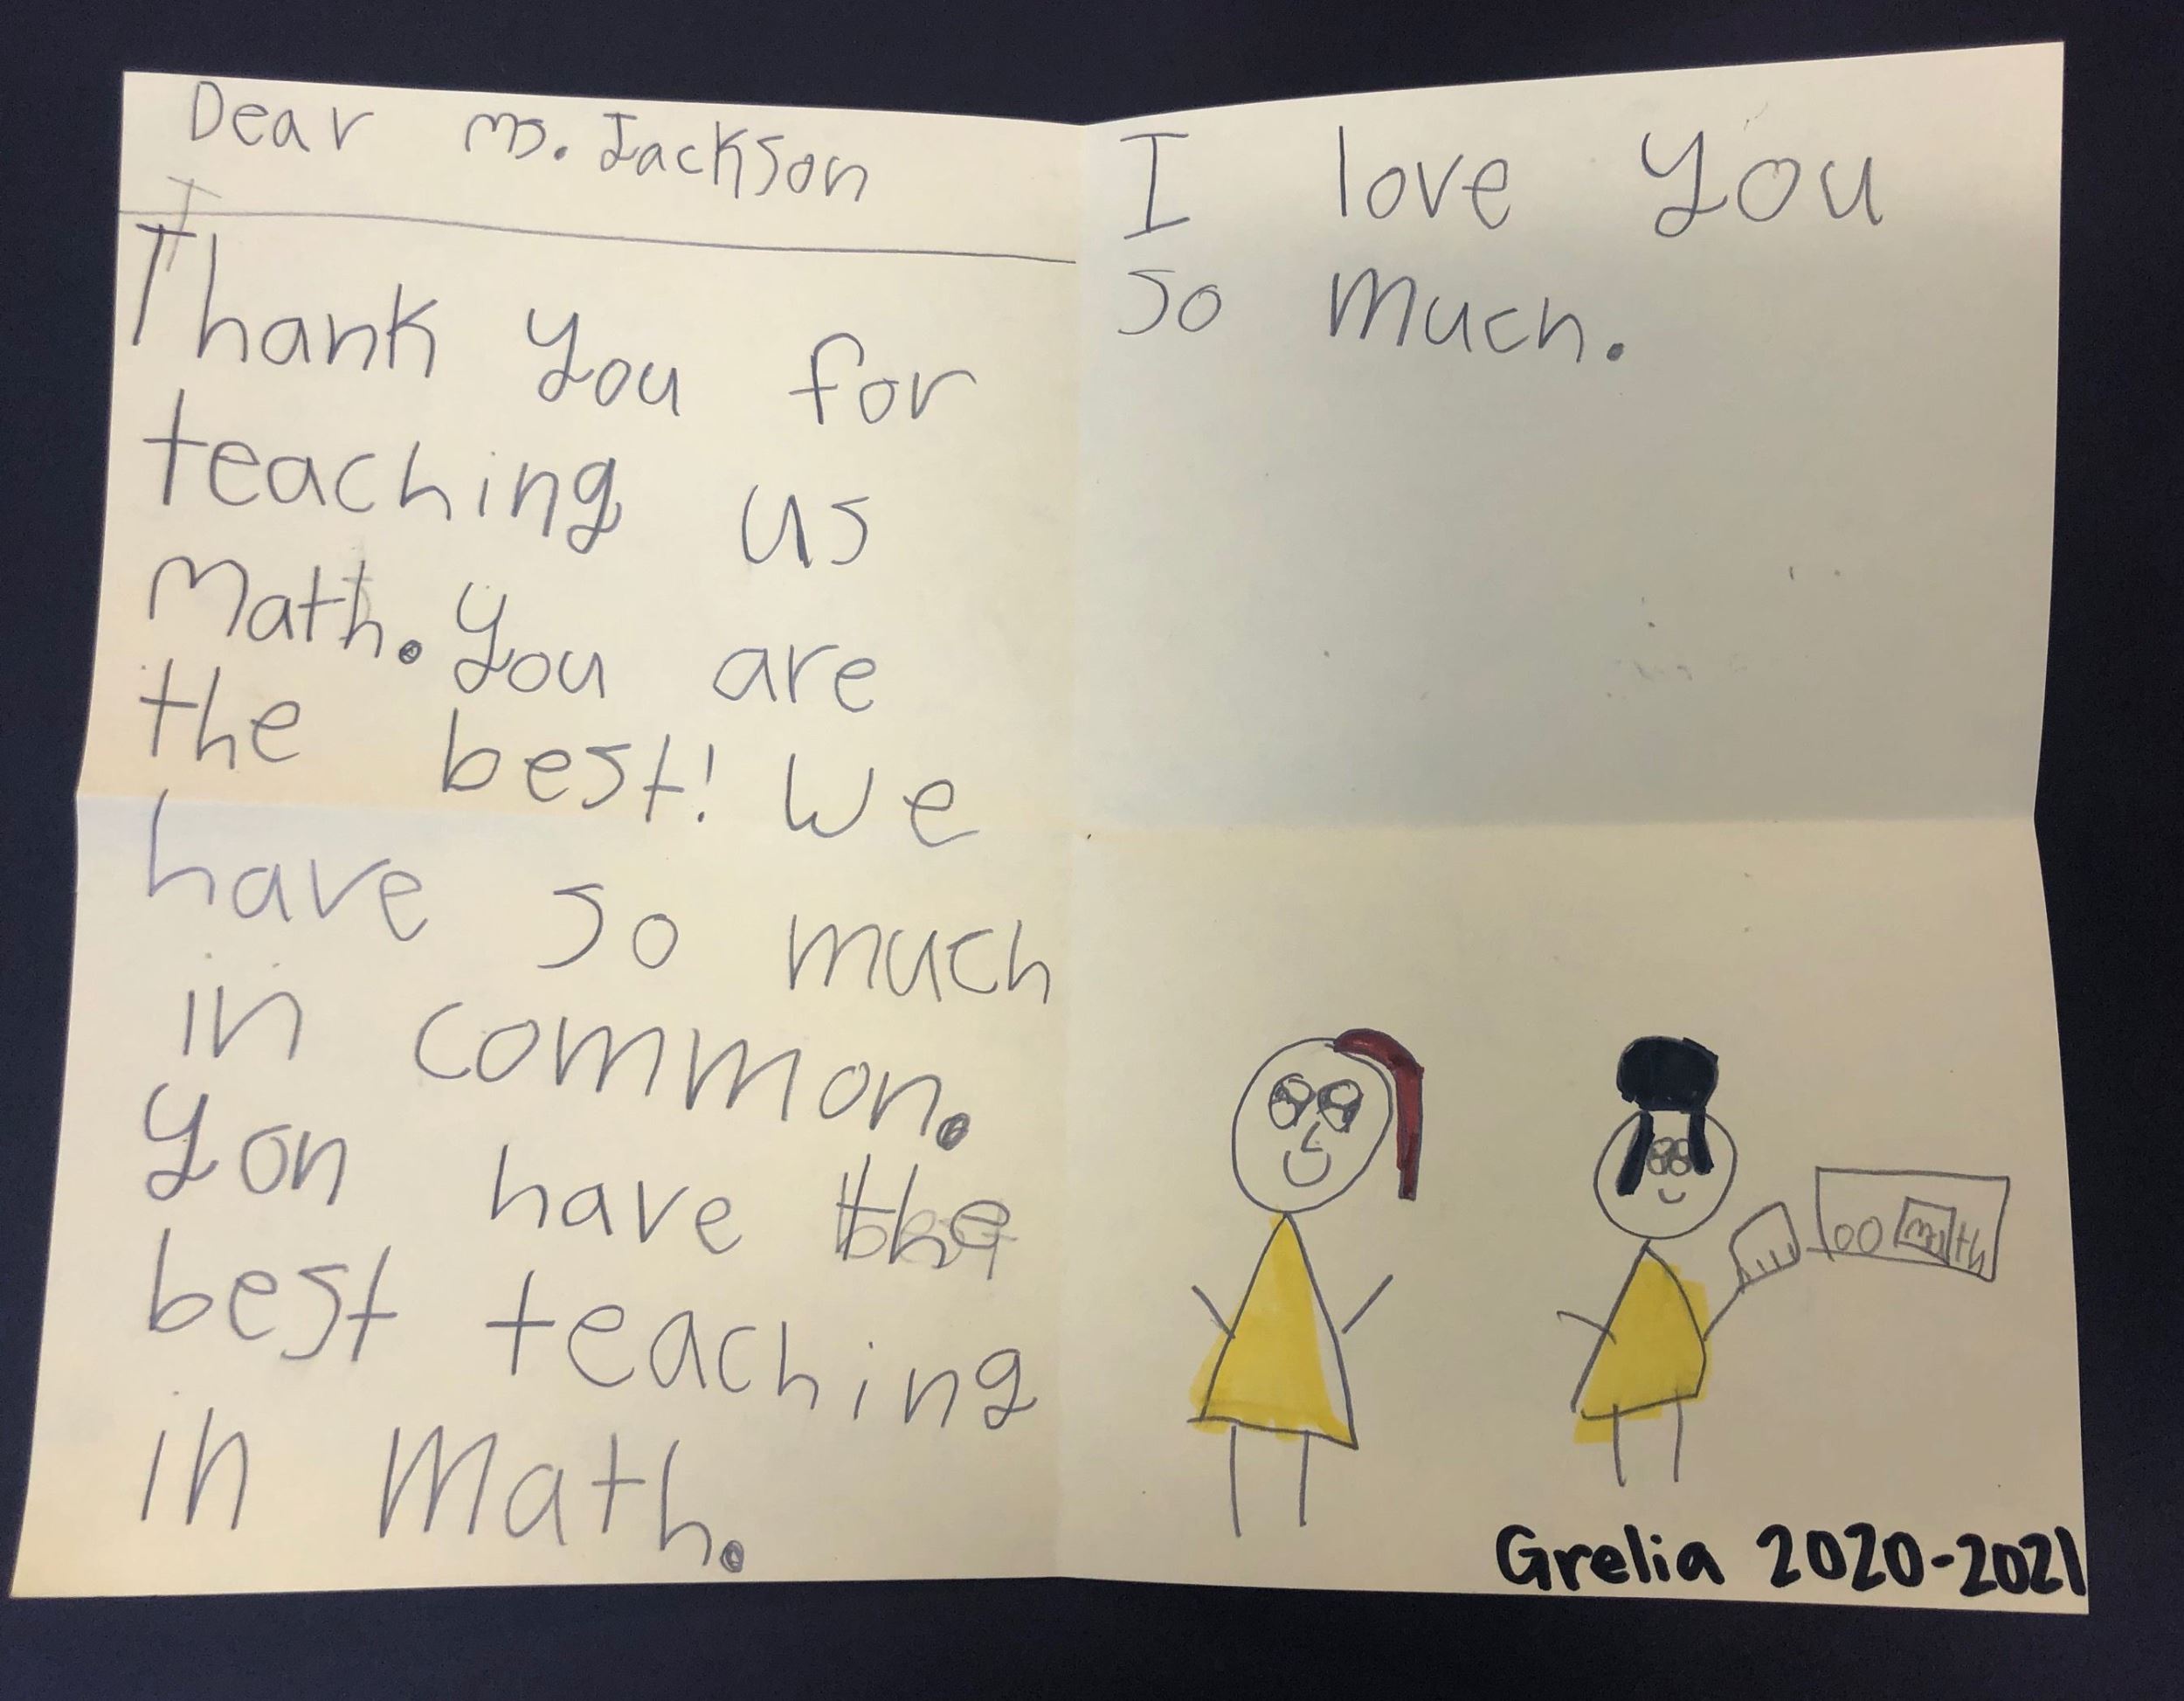 Dear Ms. Jackson
Thank you for
teaching us
Math. You are
the best! We
have so much
in common.
You have the
best teaching
in Math.
I love you
so much.
math
Grelia 2020-2021